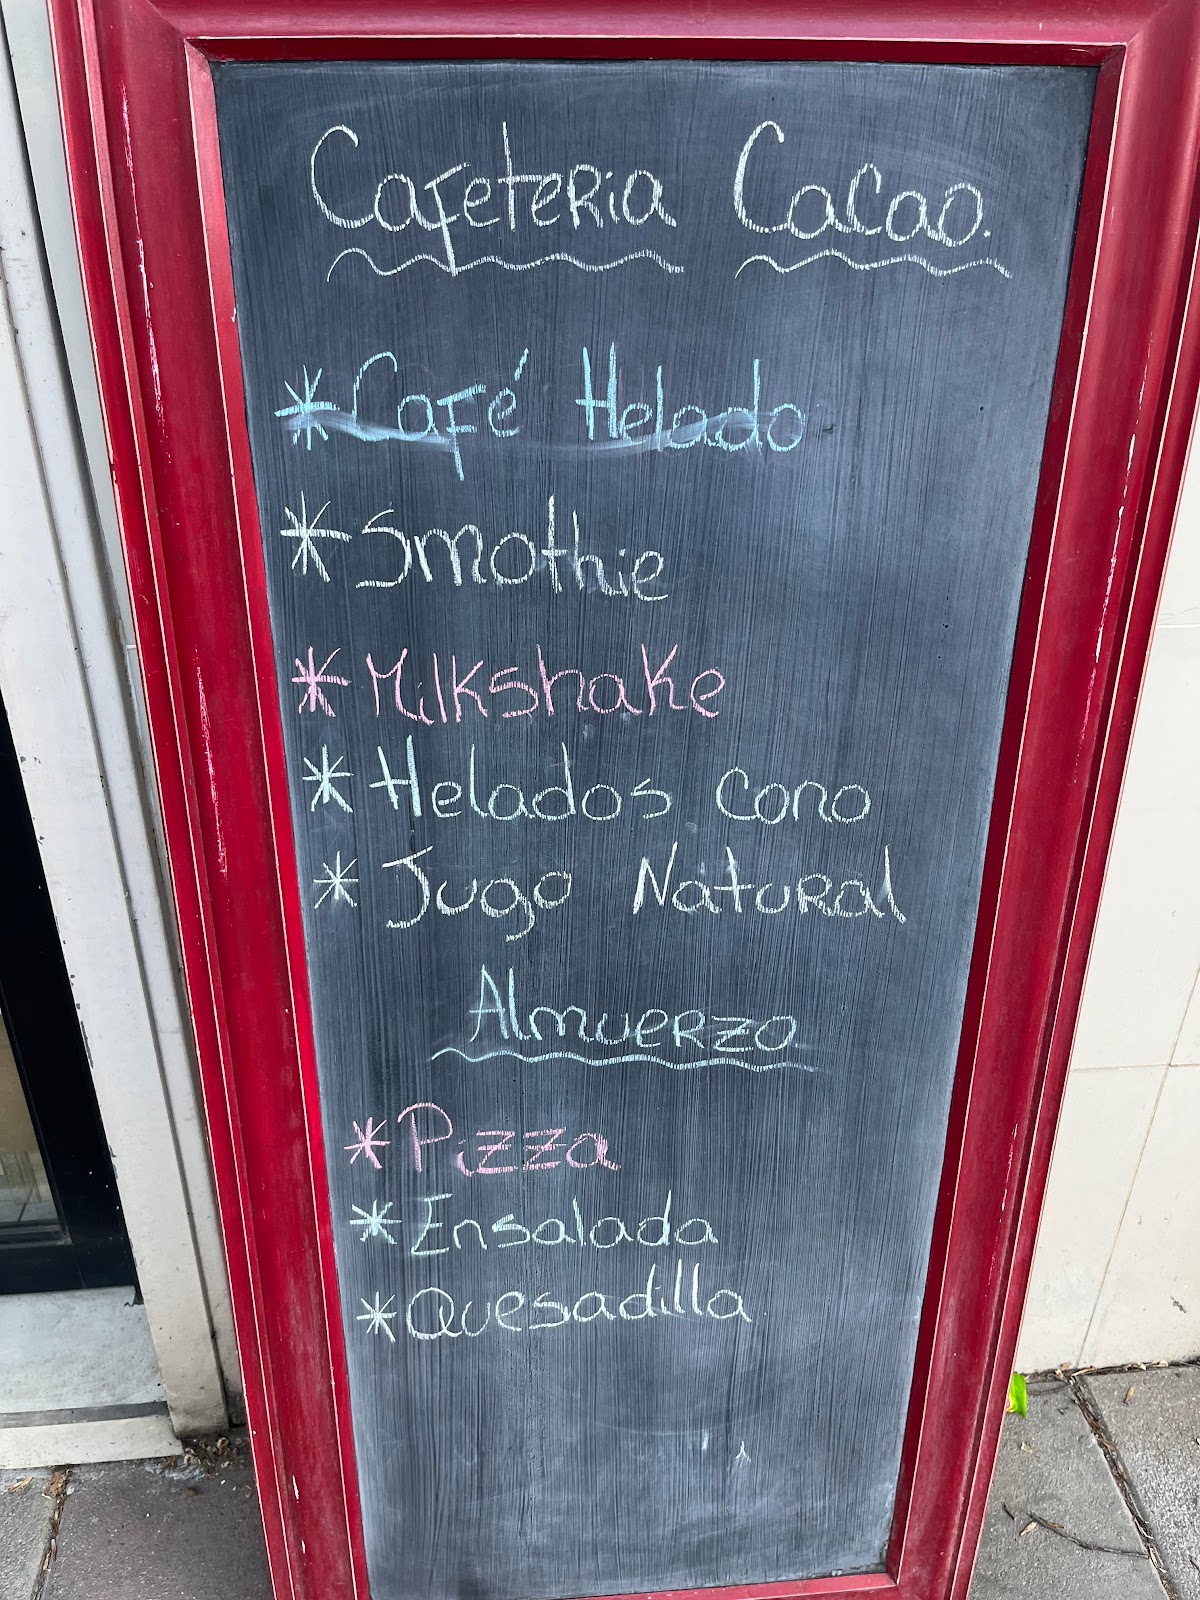 Cafeteria Cacao.
* Café Helado
* Smothie
* Milkshake
* Helados cono
* Jugo Natural
Almuerzo
* Pizza
* Ensalada
* Quesadilla